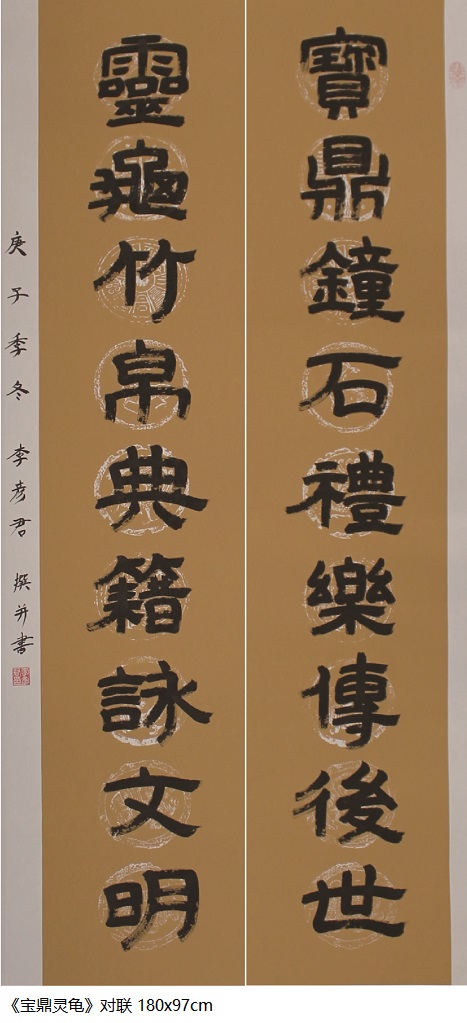 寶鼎鐘石禮樂傳後世
靈龜竹帛典籍詠文明
庚子季冬 李彦君 撰并書
《宝鼎灵龟》对联 180x97cm